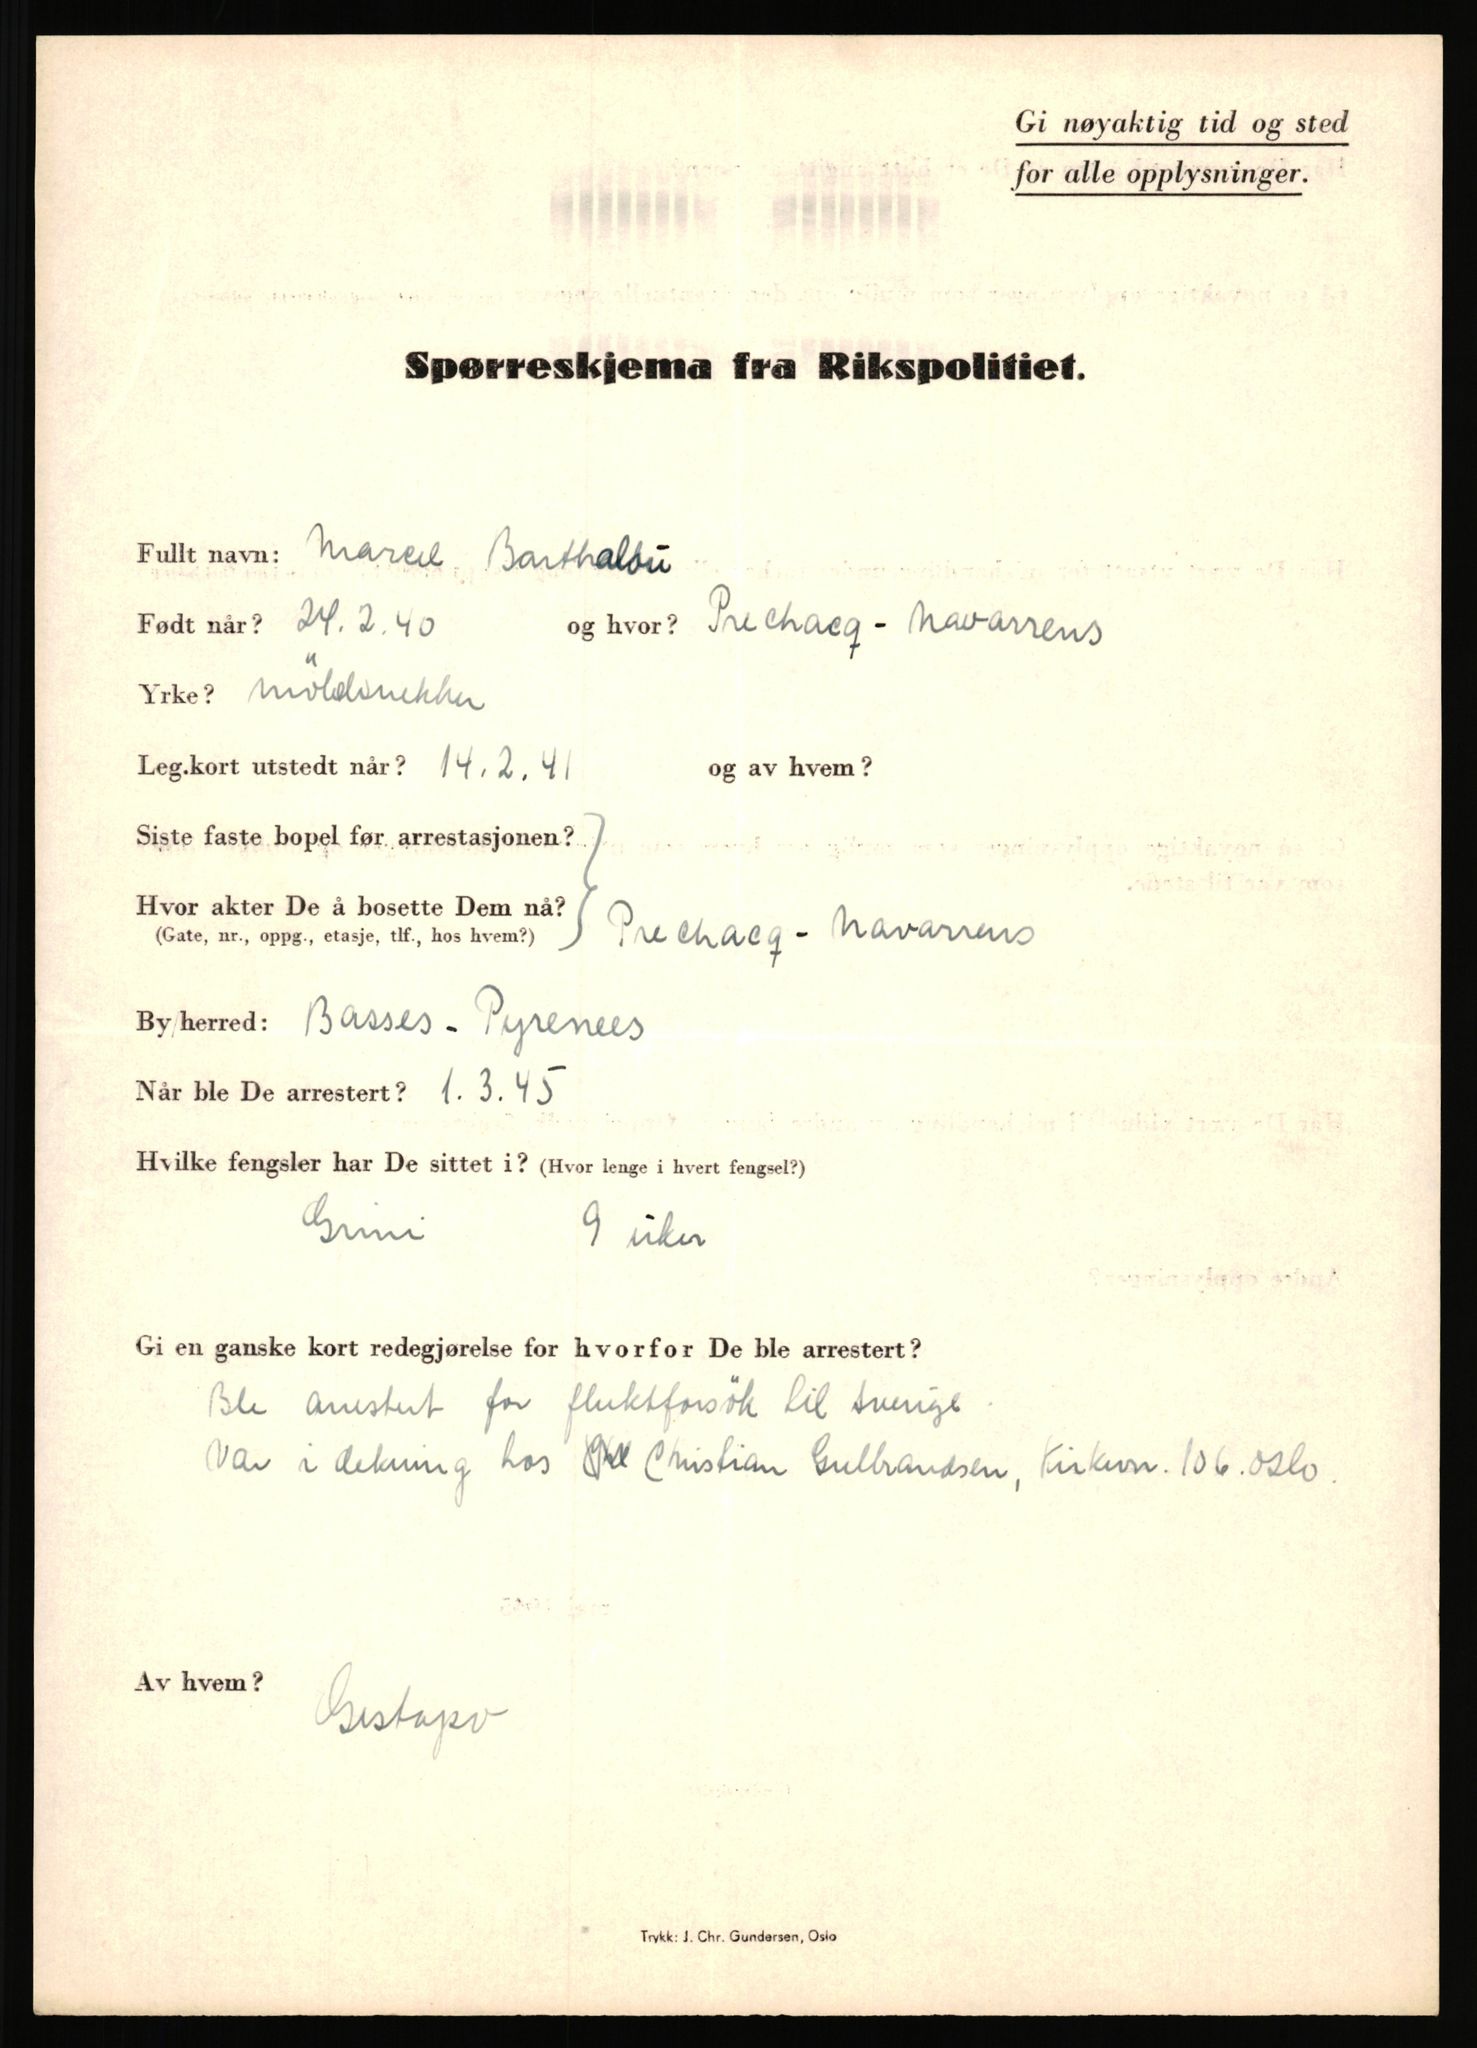 Gi nøyaktig tid og sted
for alle opplysninger.
Spørreskjema fra Rikspolitiet.
Fullt navn: Marcel Barthalou
Født når? 24.2.40 og hvor? Prechacq - Navarrens
Yrke? möldsnekker
Leg.kort utstedt når? 14.2.41 og av hvem?
Siste faste bopel før arrestasjonen?
Hvor akter De å bosette Dem nå?
(Gate, nr., oppg., etasje, tlf., hos hvem?) Prechacq - Navarrens
By/herred: Basses - Pyrenees
Når ble De arrestert? 1.3.45
Hvilke fengsler har De sittet i? (Hvor lenge i hvert fengsel?)
Grini 9 uker
Gi en ganske kort redegjørelse for hvorfor De ble arrestert?
Ble arrestert for fluktforsök til Sverige.
Var i dekning hos Christian Gulbrandsen, Kirkevn. 106. Oslo.
Av hvem? Gestapo
Trykk: J. Chr. Gundersen, Oslo